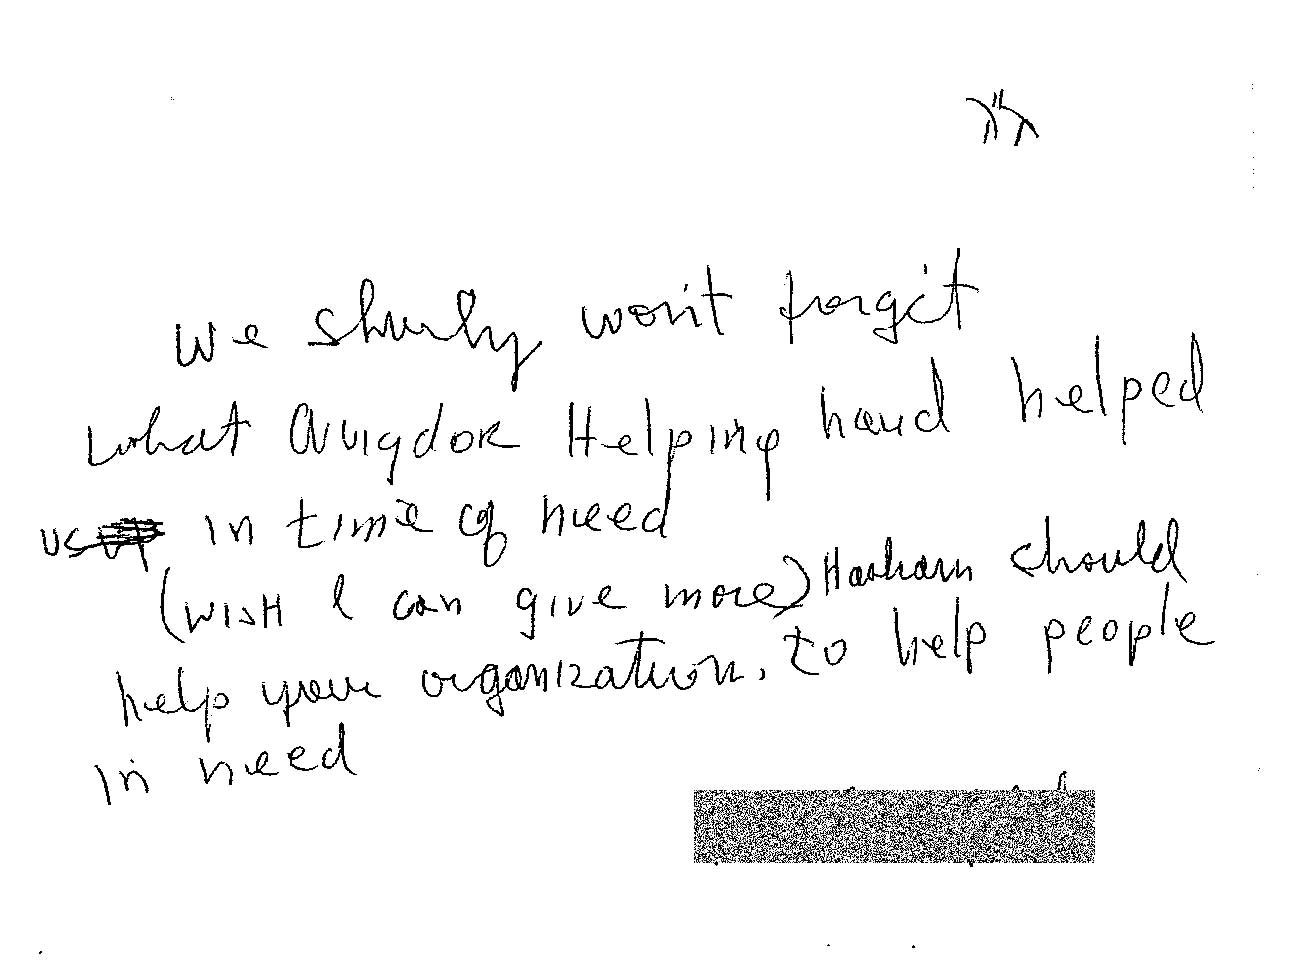 ב"ה
We shurly won't forget
what Avigdor Helping hand helped
us in time of need
(wish I can give more) Hasham should
help your organization, to help people
in need